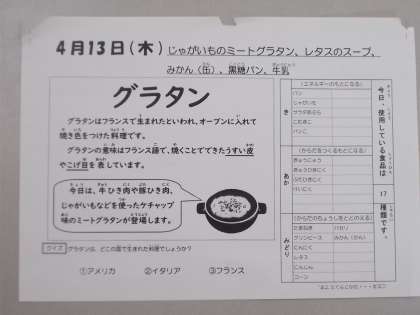 4月13日(木) じゃがいものミートグラタン、レタスのスープ、
みかん(缶)、黒糖パン、牛乳
グラタン
グラタンはフランスで生まれたといわれ、オーブンに入れて
焼き色をつけた料理です。
グラタンの意味はフランス語で、焼くことでできたうすい皮
やこげ目を表しています。
今日は、牛ひき肉や豚ひき肉、
じゃがいもなどを使ったケチャップ
味のミートグラタンが登場します。
クイズ グラタンは、どこの国で生まれた料理でしょうか?
①アメリカ ②イタリア ③フランス
今日、使用している食品は
17
種類です。
き
(エネルギーのもとになる)
パン
じゃがいも
サラダあぶら
こむぎこ
パンこ
あか
(からだをつくるもとになる)
ぎゅうにゅう
ぎゅうひきにく
ぶたひきにく
みどり
(からだのちょうしをととのえる)
たまねぎ パセリ
グリンピース みかん(かん)
にんにく
レタス
にんじん
コーン